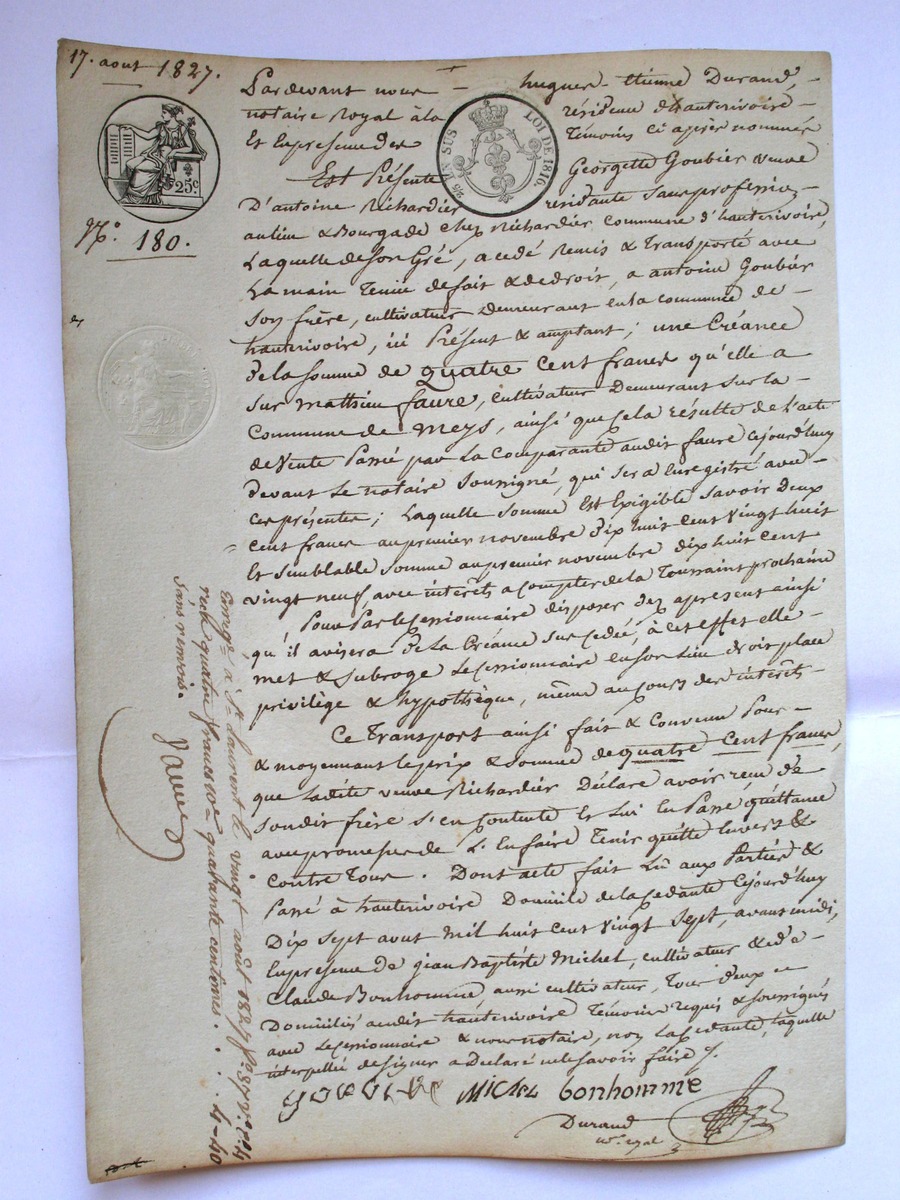 17. aout 1827.
25c
N.o 180.
25 EN SUS LOI DE 1816.
Pardevant nous hugues-étienne Durand,
notaire Royal à la résidence d'hauterivoire
Et En presence des Témoins ci après nommés
Est Présente Georgette Goubier veuve
D'antoine Richardier residante sans profession
au lieu & Bourgade chez Richardier commune d'hauterivoire,
Laquelle de son Gré, a cedé Remis & Transporté avec
La main Tenue de fait & de droit, a antoine Goubier
son frère, cultivateur demeurant en la commune de
hauterivoire, ici Présent & acceptant; une Créance
de la somme de quatre cent francs qu'elle a
sur mathieu faure, cultivateur Demeurant sur la
commune de Meys, ainsi que cela résulte de L'acte
de vente Passé par la Comparante audit faure cejourd'huy
devant Le notaire soussigné, qui sera Enregistré avec
ces présentes; Laquelle somme Est Exigible savoir Deux
cent francs au premier novembre Dix huit cent vingt huit
Et semblable somme au premier novembre dix huit cent
vingt neuf avec intérêts a compter de la Toussaint prochaine
Pour Par le cessionnaire disposer dez apresent ainsi
qu'il avisera De La Créance sus cedée, à cet effet elle
met & subroge Le cessionnaire en son Lieu droit place
privilège & hypothèque, même au cours des intérêts
Ce Transport ainsi fait & Convenu Pour
& moyennant le prix & somme de quatre Cent francs,
que ladite veuve Richardier Déclare avoir reçu de
son dit frère s'en contente Et Lui En Passe quittance
avec promesse de L'En faire Tenir quitte Envers &
contre Tous. Dont acte fait Lû aux Parties &
Passé à hauterivoire Domicile de la cedante cejourd'huy
Dix sept aout mil huit cent vingt sept, avant midi,
En presence de jean Baptiste Michel, cultivateur & de
Claude Bonhomme aussi cultivateur, Tous deux
Domiciliés audit hauterivoire Témoins requis & soussignés
avec Le cessionnaire & nous notaire, non La cedante, laquelle
interpellée de signer a Déclaré ne le savoir faire
Michel bonhomme
Durand
no. royal
Enregé à St Laurent le vingt août 1827 fo 87
reçu quatre francs quarante centimes. 4-40
sans renvois.